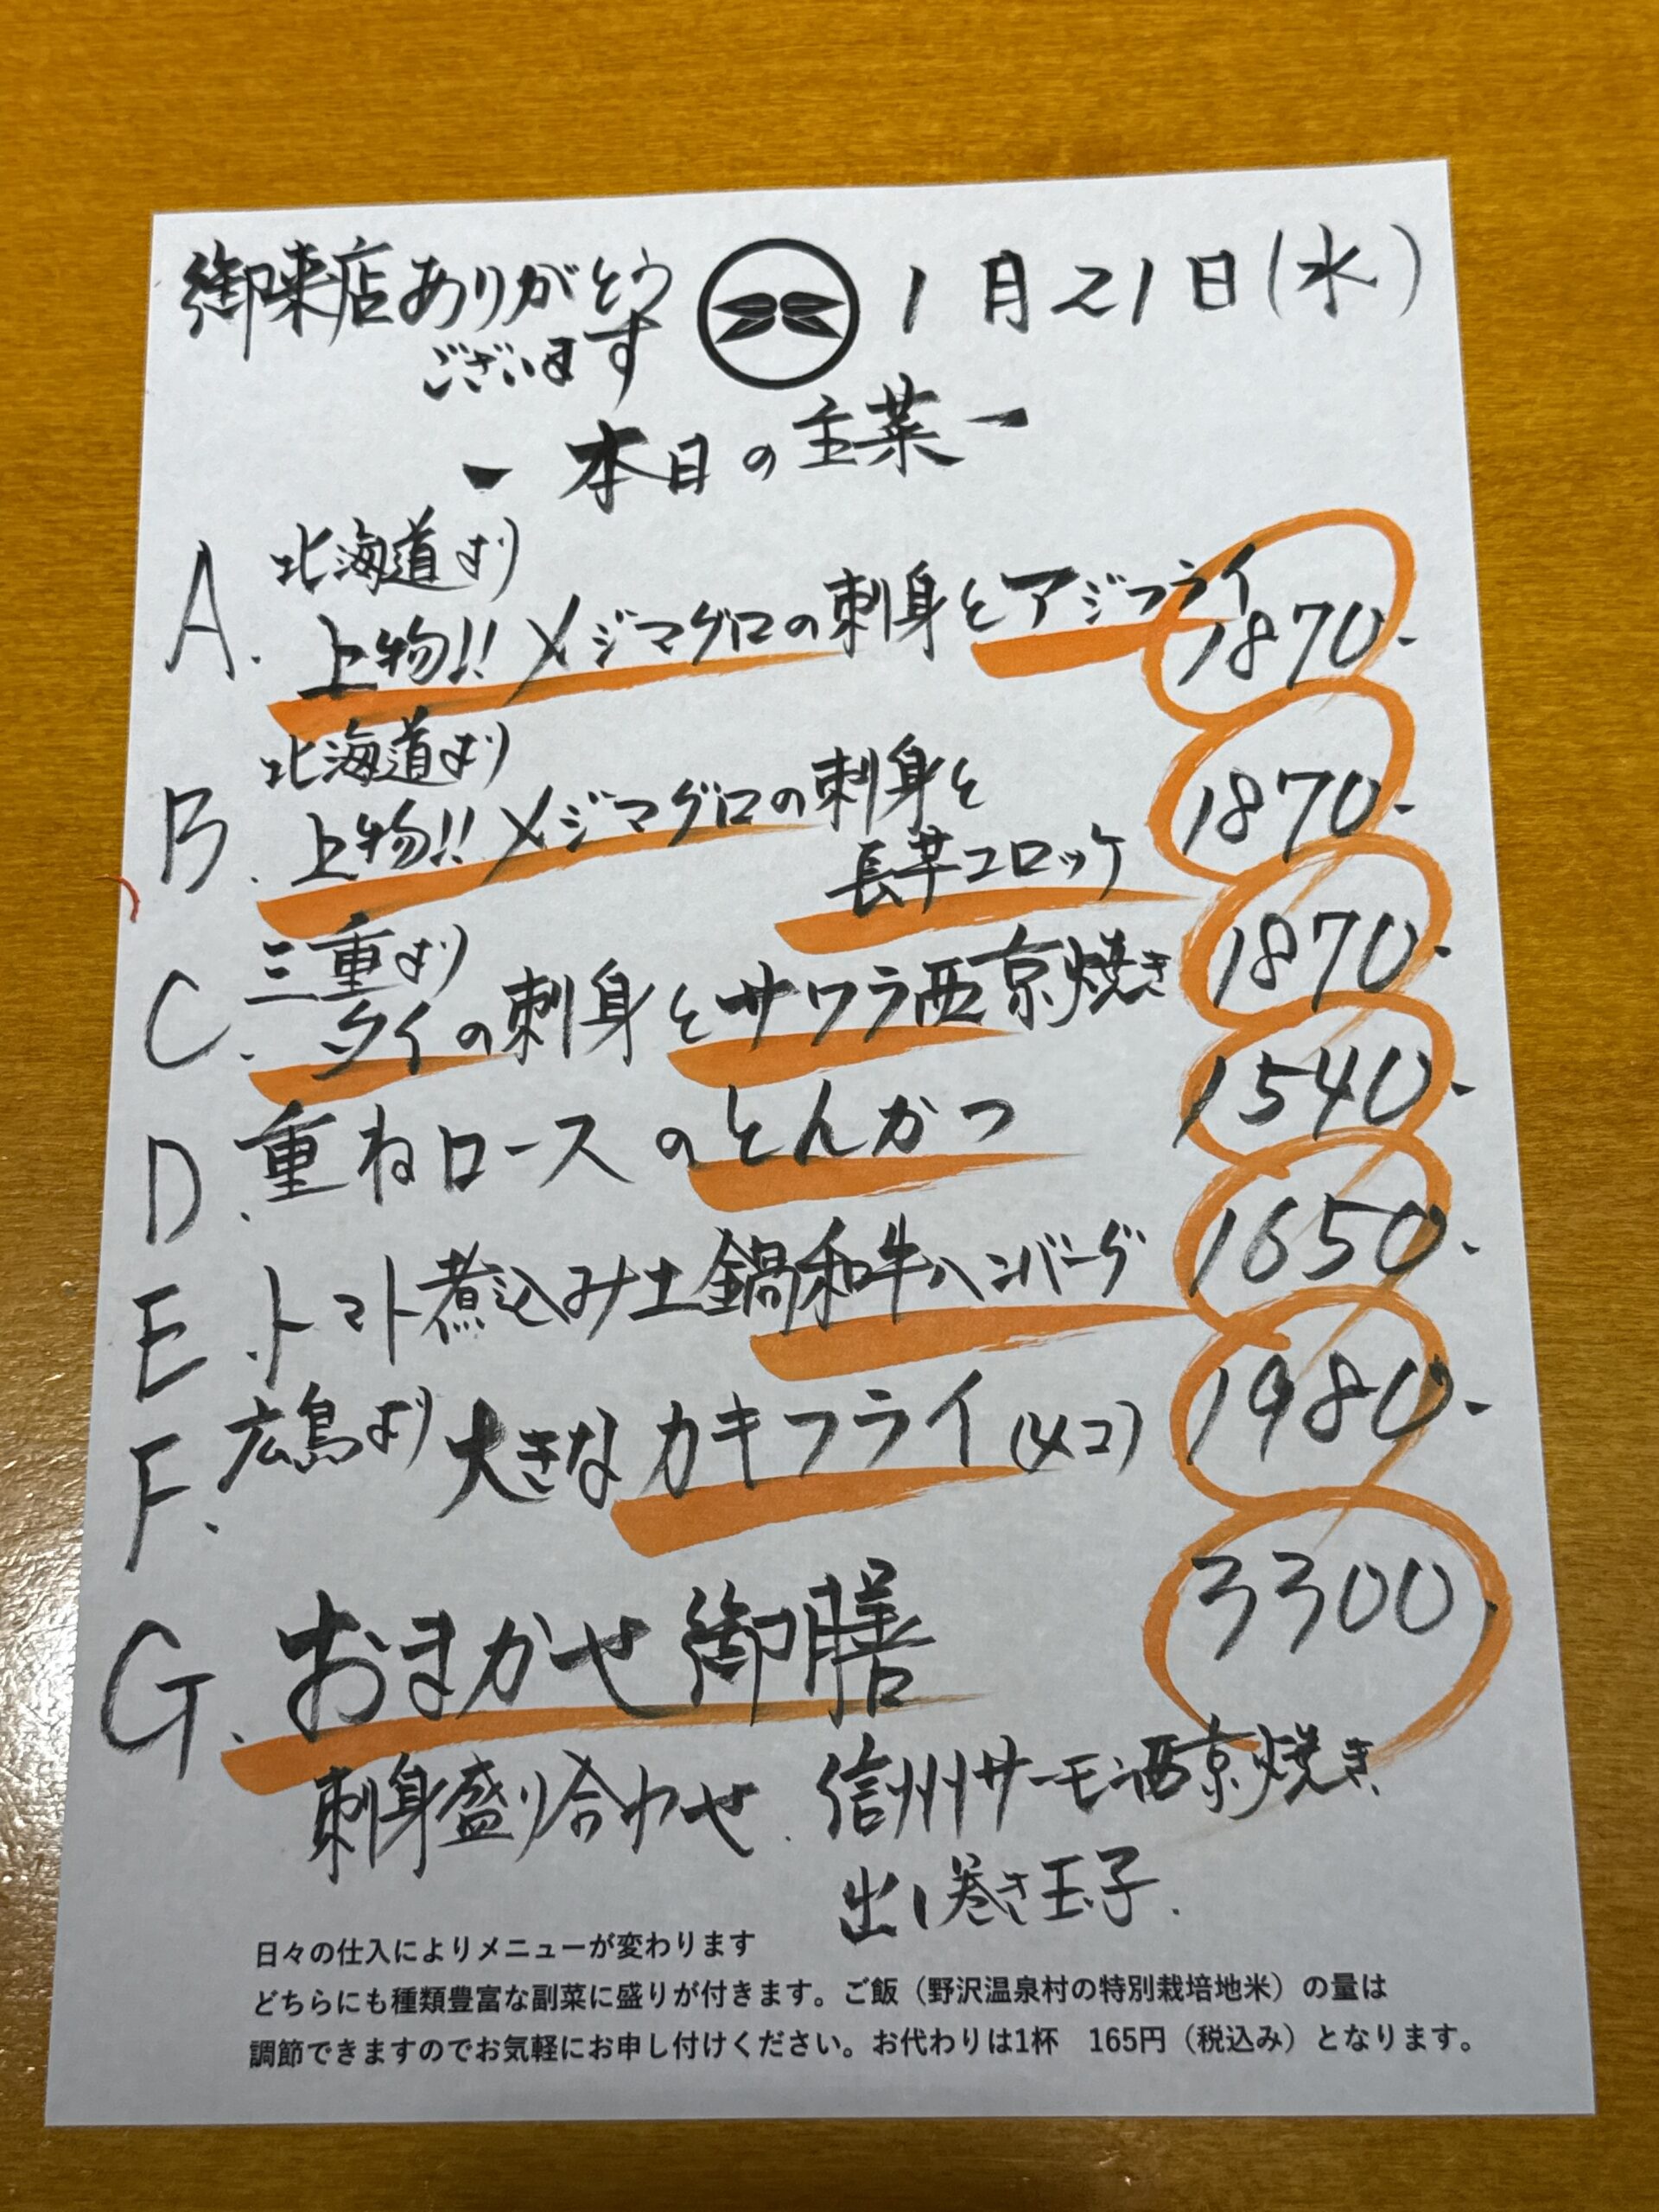 御来店ありがとう
ございます
1月21日(水)
-本日の主菜-
A. 北海道より
上物!!メジマグロの刺身とアジフライ 1870.-
B. 北海道より
上物!!メジマグロの刺身と
長芋コロッケ 1870.-
C. 三重より
タイの刺身とサワラ西京焼き 1870.-
D. 重ねロースのとんかつ 1540.-
E. トマト煮込み土鍋和牛ハンバーグ 1650.-
F. 広島より大きなカキフライ(4コ) 1980.-
G. おまかせ御膳 3300.
刺身盛り合わせ. 信州サーモン西京焼き
出し巻き玉子.
日々の仕入によりメニューが変わります
どちらにも種類豊富な副菜に盛りが付きます。ご飯(野沢温泉村の特別栽培地米)の量は
調節できますのでお気軽にお申し付けください。お代わりは1杯 165円(税込み)となります。